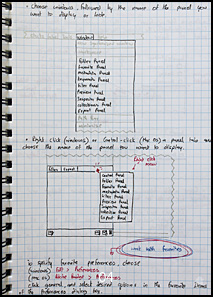 • Choose windows, followed by the name of the panel you
want to display or hide.
window
Folders Panel
Favorite Panel
Metadata Panel
Keywords Panel
Filter Panel
Preview Panel
Inspector Panel
Collections Panel
Export Panel
• Right click (windows) or Control-click (Mac OS) a panel tab and
choose the name of the panel you want to display.
Right click
menu
Folders
Content Panel
Folder Panel
Favorite Panel
Metadata Panel
Keywords Panel
Filter Panel
Preview Panel
Inspector Panel
Collection Panel
Export Panel
work with favorites
To specify favorite preferences, choose
(windows) Edit > Preferences
(Mac OS) Adobe Bridge > Preferences
click general, and select desired options in the favorite items
of the preferences dialog box.